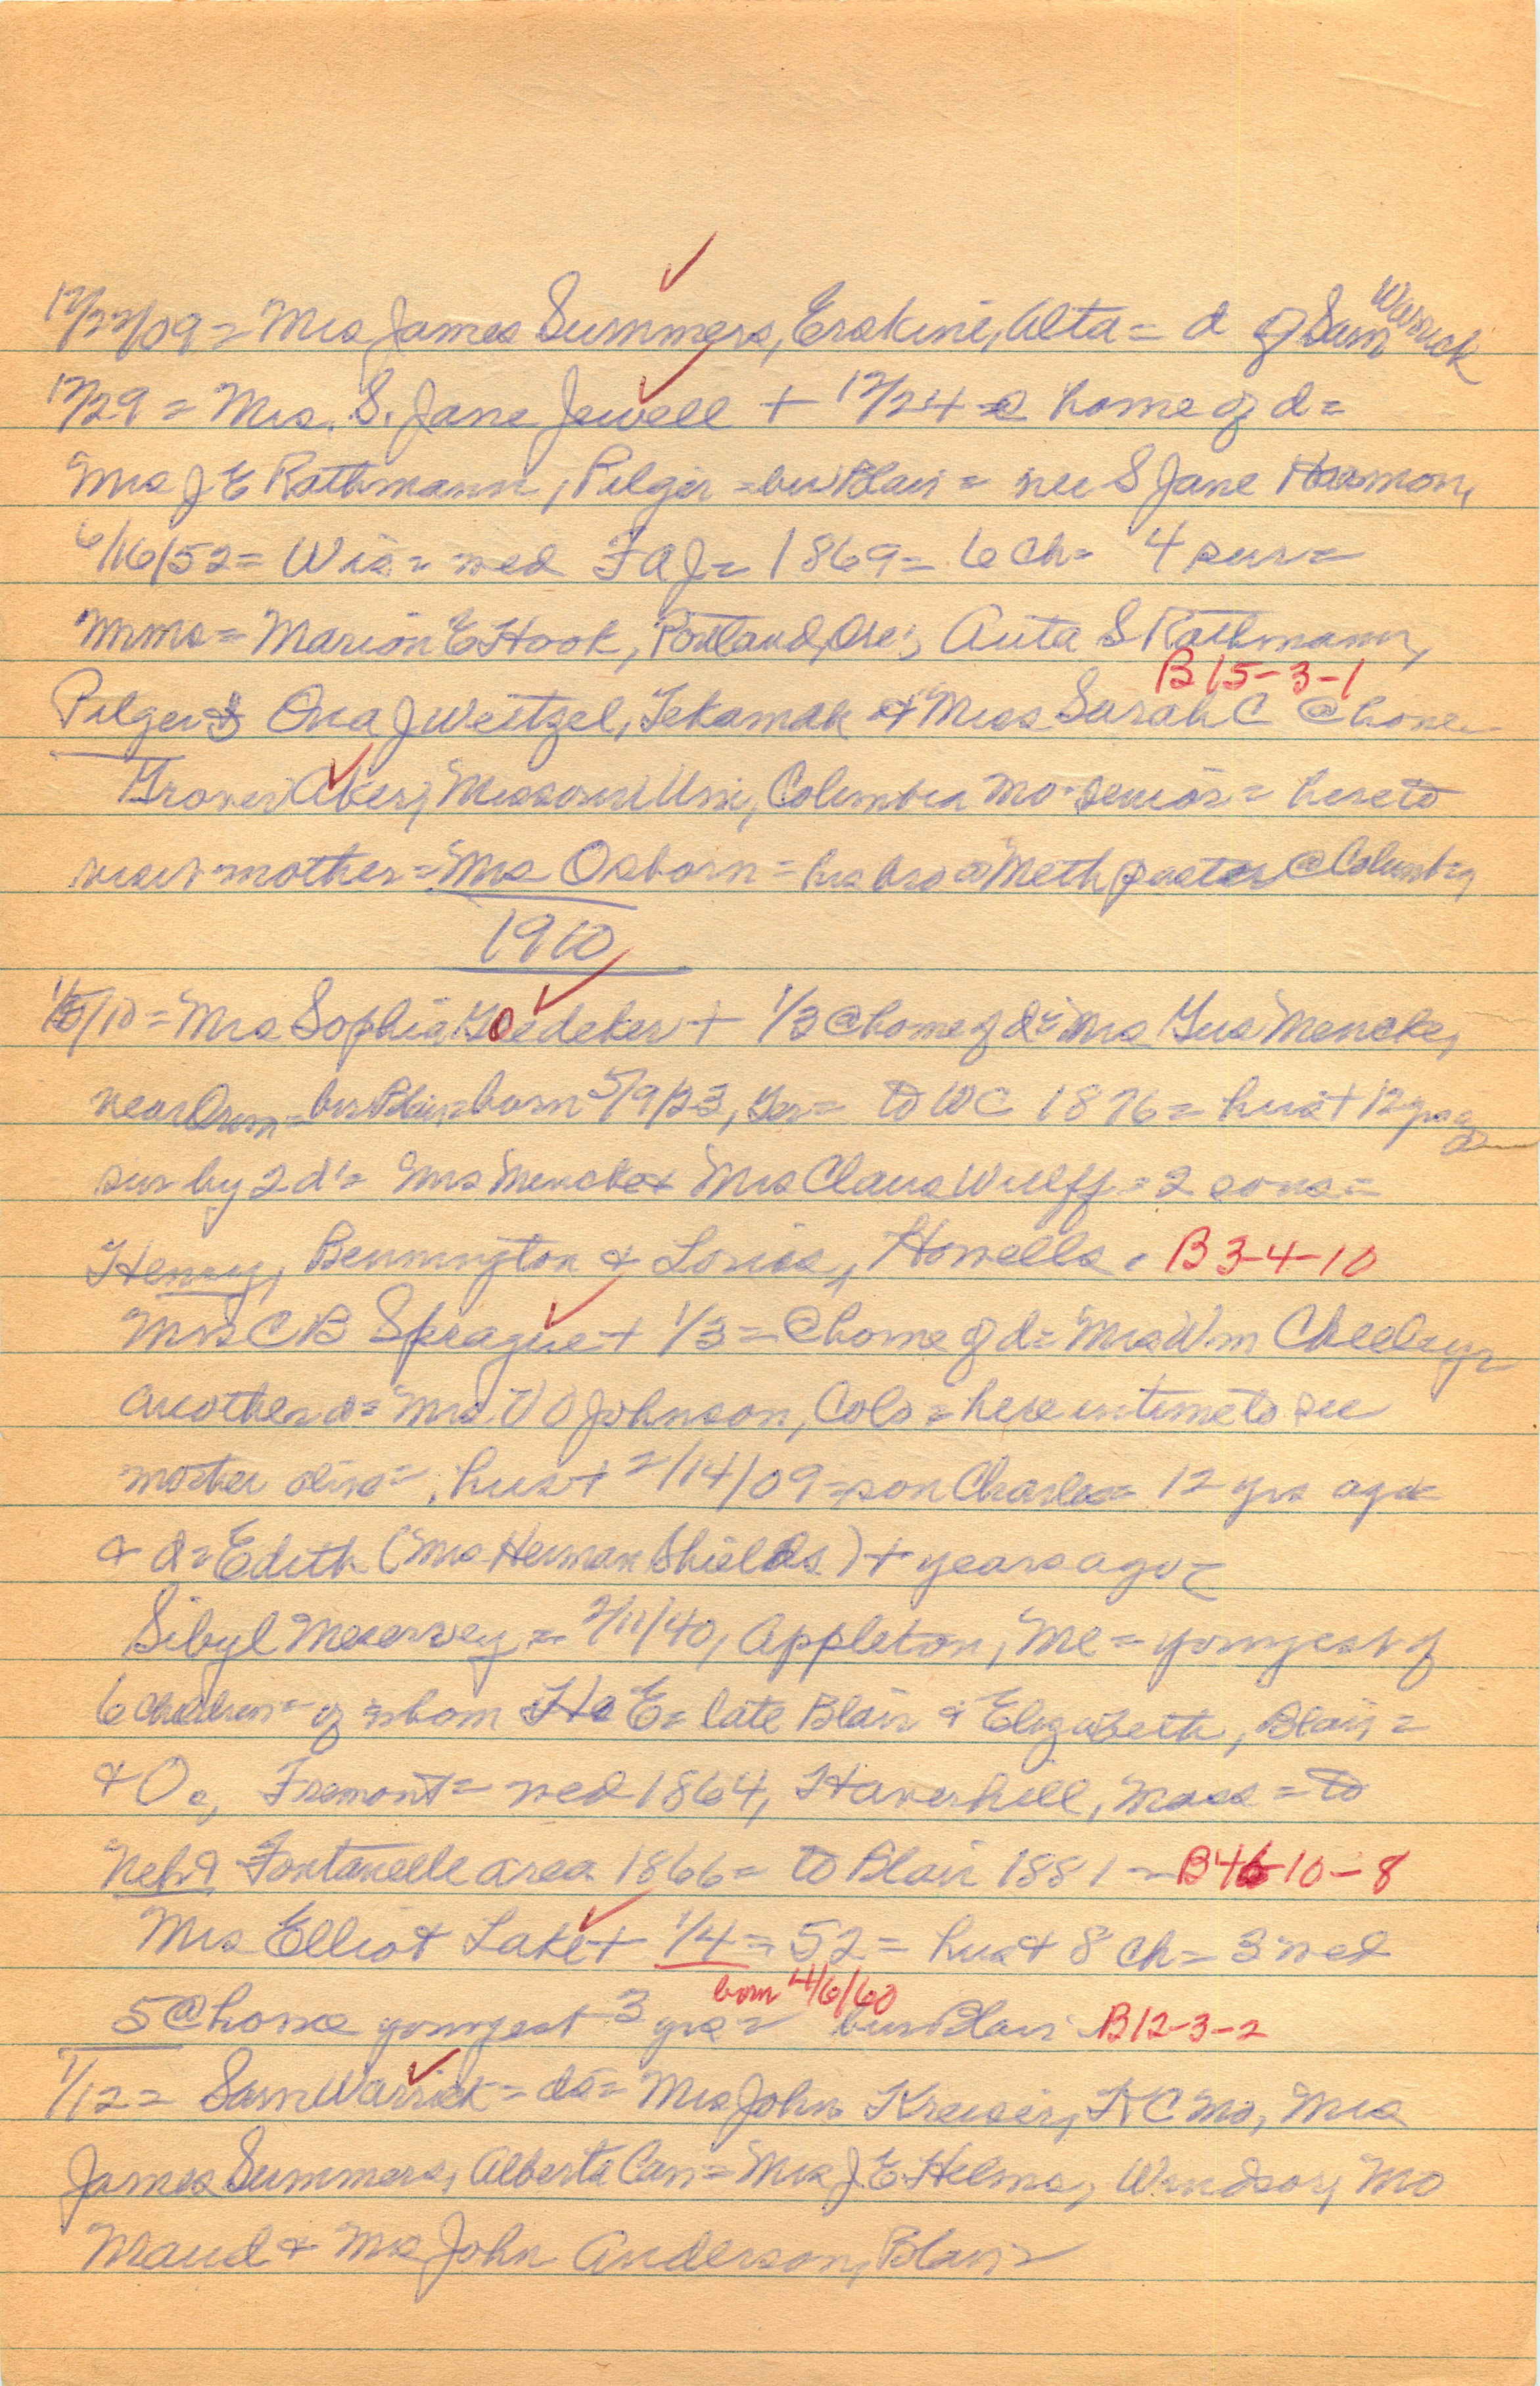 12/22/09 = Mrs James Summers, Erskine, Alta = d of Sam Warrick
12/29 = Mrs. S. Jane Jewell + 12/24 @ home of d =
Mrs J E Rathmann, Pilger = bur Blair = nee S Jane Harmon,
6/16/52 = Wis = wed F A J = 1869 = 6 ch = 4 sur =
Mmes = Marion E Hook, Portland, Ore; Auta S Rathmann,
B 15-3-1
Pilger & Ona J Weitzel, Tekamah & Miss Sarah C @ home
Grover Aker, Missouri Uni, Columbia Mo. senior = here to
visit mother = Mrs Osborn = his bro a Meth pastor @ Columbia
1910
1/5/10 = Mrs Sophia Goedeker + 1/3 @ home of d = Mrs Gus Mencke,
near Orum = bur Blair born 5/9/23, Ger = to WC 1876 = hus + 12 yrs ago
sur by 2 d' = Mrs Mencke & Mrs Claus Wulff = 2 sons =
Henry, Bennington & Louis, Howells. B 3-4-10
Mrs C B Sprague + 1/3 = @ home of d = Mrs Wm Cheeley
another d = Mrs V O Johnson, Colo = here in time to see
mother alive = hus + 2/14/09 = son Charles = 12 yrs ago
& d = Edith (Mrs Herman Shields) + years ago =
Sibyl Meservey = 2/11/40, Appleton, Me = youngest of
6 children = of whom H E = late Blair & Elizabeth, Blair =
& O., Fremont = wed 1864, Haverhill, Mass = to
Neb & Fontanelle area 1866 = to Blair 1881 = B46-10-8
Mrs Elliot Lake + 1/4 = 52 = hus & 8 ch = 3 wed
born 4/6/60
5 @ home youngest 3 yrs = bur Blair B12-3-2
1/12 = Sam Warrick = ds = Mrs John Kreiser, K C Mo, Mrs
James Summers, Alberta Can = Mrs J E Helms, Windsor, Mo
Maud & Mrs John Anderson, Blair =